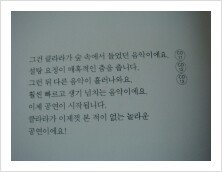 그건 클라라가 숲 속에서 들었던 음악이에요.
설탕 요정이 매혹적인 춤을 춥니다.
그런 뒤 다른 음악이 흘러나와요.
훨씬 빠르고 생기 넘치는 음악이에요.
이제 공연이 시작됩니다.
클라라가 이제껏 본 적이 없는 놀라운
공연이에요!